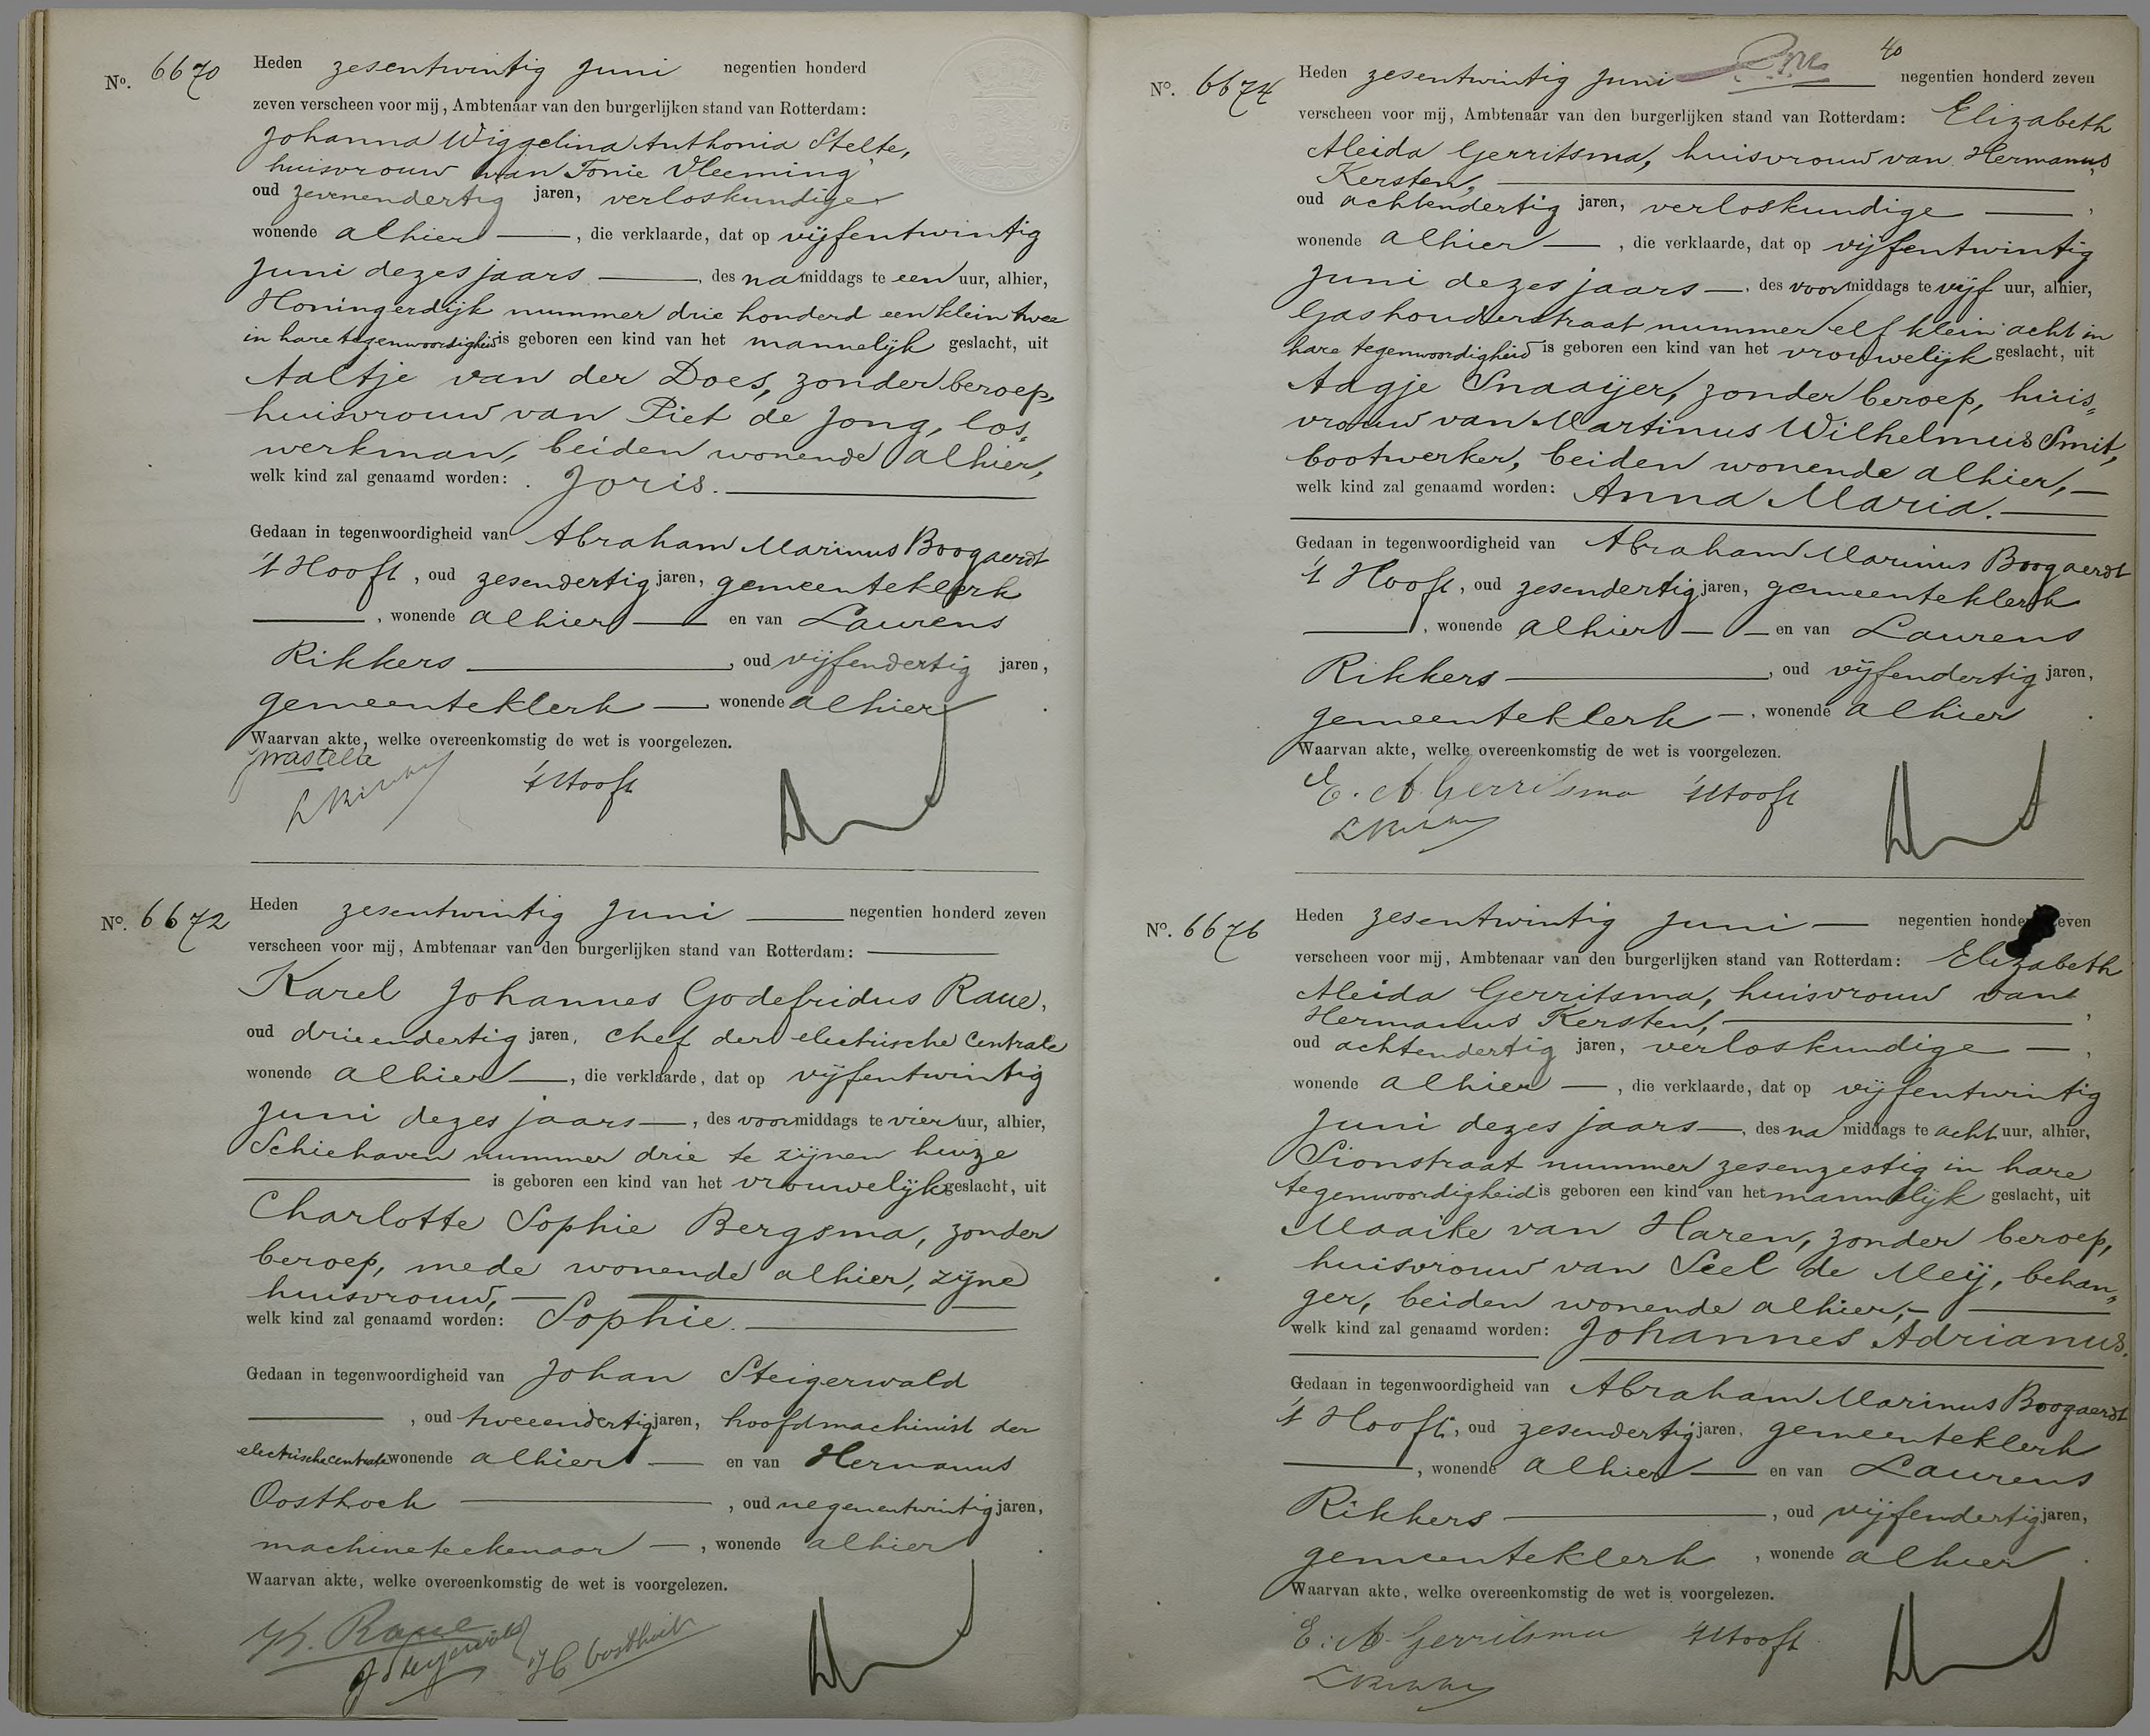 No. 6670
Heden zesentwintig Juni negentien honderd
zeven verscheen voor mij, Ambtenaar van den burgerlijken stand van Rotterdam:
Johanna Wiggelina Anthonia Stelte,
huisvrouw van Tonie Vleeming
oud zevenendertig jaren, verloskundige
wonende alhier, die verklaarde, dat op vijfentwintig
Juni dezes jaars, des namiddags te een uur, alhier,
Honingerdijk nummer drie honderd een klein twee
in hare tegenwoordigheid is geboren een kind van het mannelijk geslacht, uit
Aaltje van der Does, zonder beroep,
huisvrouw van Piet de Jong, los-
werkman, beiden wonende alhier,
welk kind zal genaamd worden: Joris.
Gedaan in tegenwoordigheid van Abraham Marinus Boogaerdt
't Hooft, oud zesendertig jaren, gemeenteklerk
, wonende alhier en van Laurens
Rikkers, oud vijfendertig jaren,
gemeenteklerk wonende alhier.
Waarvan akte, welke overeenkomstig de wet is voorgelezen.
JWAStelte
LRikkers 't Hooft
No. 6672
Heden zesentwintig Juni negentien honderd zeven
verscheen voor mij, Ambtenaar van den burgerlijken stand van Rotterdam:
Karel Johannes Godefridus Raue,
oud drieendertig jaren, chef der electrische Centrale
wonende alhier, die verklaarde, dat op vijfentwintig
Juni dezes jaars, des voormiddags te vier uur, alhier,
Schiehaven nummer drie te zijnen huize
is geboren een kind van het vrouwelijk geslacht, uit
Charlotte Sophie Bergsma, zonder
beroep, mede wonende alhier, zijne
huisvrouw,
welk kind zal genaamd worden: Sophie.
Gedaan in tegenwoordigheid van Johan Steigerwald
, oud tweeendertig jaren, hoofdmachinist der
electrische centrale wonende alhier en van Hermanus
Oosthoek, oud negenentwintig jaren,
machineteekenaar, wonende alhier.
Waarvan akte, welke overeenkomstig de wet is voorgelezen.
Raue
J Steigerwald H Oosthoek
40
No. 6674
Heden zesentwintig Juni negentien honderd zeven
verscheen voor mij, Ambtenaar van den burgerlijken stand van Rotterdam: Elizabeth
Aleida Gerritsma, huisvrouw van Hermanus
Kersten,
oud achtendertig jaren, verloskundige,
wonende alhier, die verklaarde, dat op vijfentwintig
Juni dezes jaars, des voormiddags te vijf uur, alhier,
Gashouderstraat nummer elf klein acht in
hare tegenwoordigheid is geboren een kind van het vrouwelijk geslacht, uit
Aagje Snaaijer, zonder beroep, huis-
vrouw van Martinus Wilhelmus Smit,
bootwerker, beiden wonende alhier,
welk kind zal genaamd worden: Anna Maria.
Gedaan in tegenwoordigheid van Abraham Marinus Boogaerdt
't Hooft, oud zesendertig jaren, gemeenteklerk
, wonende alhier en van Laurens
Rikkers, oud vijfendertig jaren,
gemeenteklerk, wonende alhier.
Waarvan akte, welke overeenkomstig de wet is voorgelezen.
E. A. Gerritsma 't Hooft
LRikkers
No. 6676
Heden zesentwintig Juni negentien honderd zeven
verscheen voor mij, Ambtenaar van den burgerlijken stand van Rotterdam: Elizabeth
Aleida Gerritsma, huisvrouw van
Hermanus Kersten,
oud achtendertig jaren, verloskundige,
wonende alhier, die verklaarde, dat op vijfentwintig
Juni dezes jaars, des namiddags te acht uur, alhier,
Sionstraat nummer zesenzestig in hare
tegenwoordigheid is geboren een kind van het mannelijk geslacht, uit
Maaike van Haren, zonder beroep,
huisvrouw van Seel de Meij, behan-
ger, beiden wonende alhier,
welk kind zal genaamd worden: Johannes Adrianus.
Gedaan in tegenwoordigheid van Abraham Marinus Boogaerdt
't Hooft, oud zesendertig jaren, gemeenteklerk
, wonende alhier en van Laurens
Rikkers, oud vijfendertig jaren,
gemeenteklerk, wonende alhier.
Waarvan akte, welke overeenkomstig de wet is voorgelezen.
E. A. Gerritsma 't Hooft
LRikkers